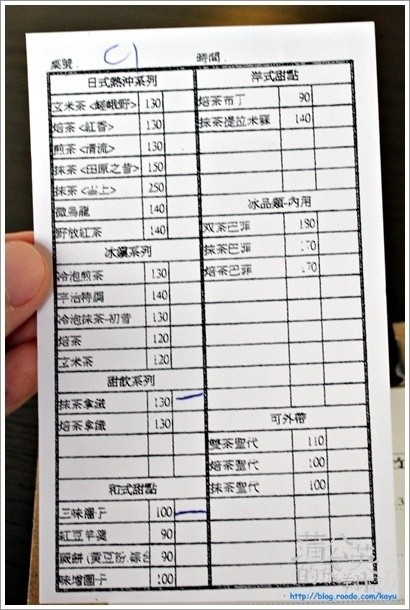 桌號. C1 時間.
日式熱沖系列
玄米茶 <嵯峨野> 130
焙茶 <紅香> 130
煎茶 <清流> 130
抹茶 <田原之昔> 150
抹茶 <雲上> 250
微烏龍 140
野放紅茶 140
冰鎮系列
冷泡煎茶 130
宇治特調 140
冷泡抹茶-初昔 130
焙茶 120
玄米茶 120
甜飲系列
抹茶拿鐵 130
焙茶拿鐵 130
和式甜點
三味糰子 100
紅豆羊羹 90
蕨餅 (黃豆粉.綜合 90
味增糰子 100
洋式甜點
焙茶布丁 90
抹茶提拉米蘇 140
冰品類-內用
双茶巴菲 180
抹茶巴菲 170
焙茶巴菲 170
可外帶
雙茶聖代 110
焙茶聖代 100
抹茶聖代 100
蒲公英
http://blog.roodo.com/kayu